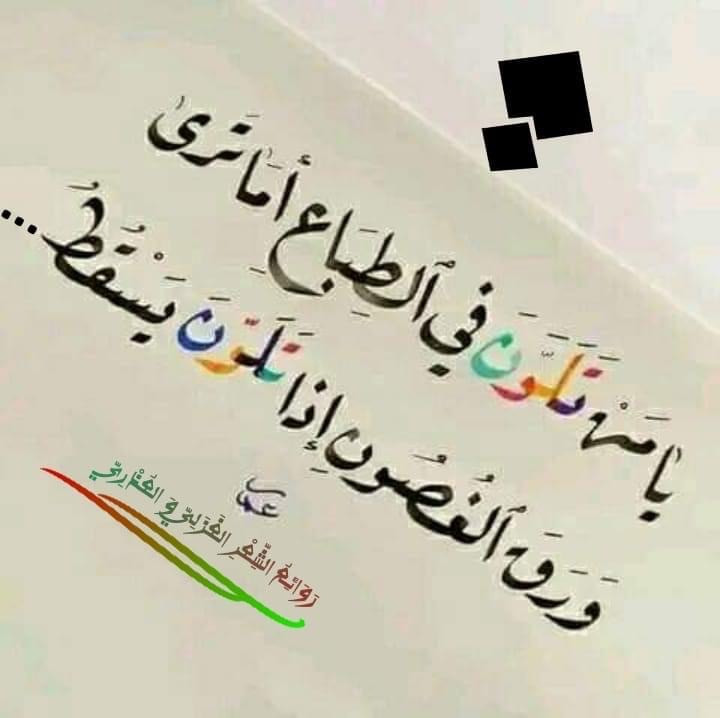 يا مَنْ تَلَوَّنَ في ٱلطِبَاعِ أمَا تَرىٰ
وَرَقَ ٱلغُصُونِ إِذَا تَلَوّنَ يَسْقُطُ...
رَوَائِعُ الشِّعْرِ الغَزَلِيّ وَ العُذْرِيّ